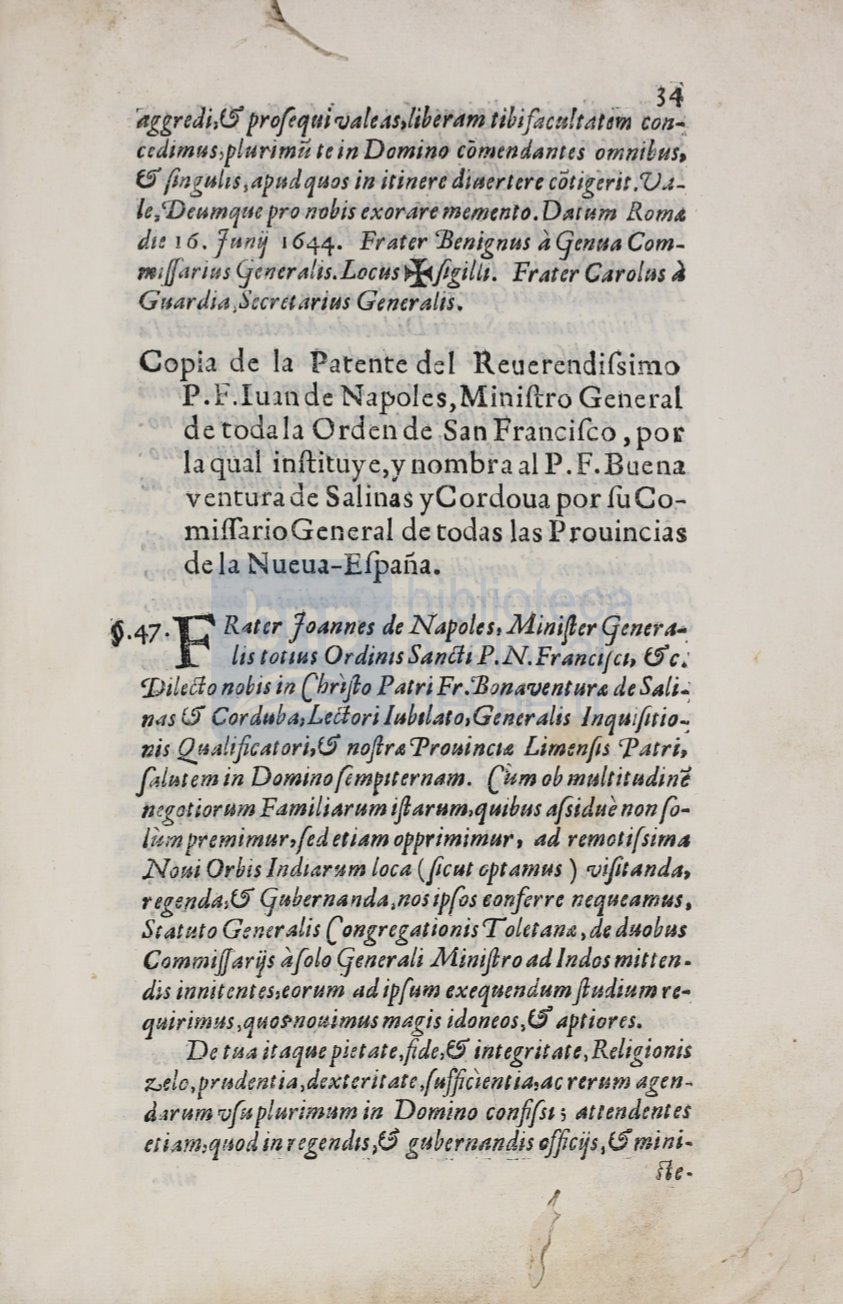 34
aggredi,& proſequi valeas,liberam tibi facultatem con-
cedimus,plurimũ te in Domino cõmendantes omnibus,
& ſingulis,apud quos in itinere diuertere cõtigerit.Va-
le,Deumque pro nobis exorare memento.Datum Romæ
die 16. Junij 1644. Frater Benignus à Genua Com-
miſſarius Generalis.Locus ✠ ſigilli. Frater Carolus à
Guardia,Secretarius Generalis.
Copia de la Patente del Reuerendiſsimo
P.F.Iuan de Napoles,Miniſtro General
de toda la Orden de San Franciſco,por
la qual inſtituye,y nombra al P.F.Buena
ventura de Salinas y Cordoua por ſu Co-
miſſario General de todas las Prouincias
de la Nueua-Eſpaña.
§.47. FRater Joannes de Napoles, Miniſter Genera-
lis totius Ordinis Sancti P.N.Franciſci, &c.
Dilecto nobis in Chriſto Patri Fr.Bonaventuræ de Sali-
nas & Corduba,Lectori Iubilato,Generalis Inquiſitio-
nis Qualificatori,& noſtræ Prouinciæ Limenſis Patri,
ſalutem in Domino ſempiternam. Cùm ob multitudinẽ
negotiorum Familiarum iſtarum,quibus aſsiduè non ſo-
lùm premimur,ſed etiam opprimimur, ad remotiſsima
Noui Orbis Indiarum loca (ſicut optamus) viſitanda,
regenda,& Gubernanda,nos ipſos conferre nequeamus,
Statuto Generalis Congregationis Toletanæ,de duobus
Commiſſarijs à ſolo Generali Miniſtro ad Indos mitten-
dis innitentes,eorum ad ipſum exequendum ſtudium re-
quirimus,quos nouimus magis idoneos,& aptiores.
De tua itaque pietate,fide,& integritate,Religionis
zelo,prudentia,dexteritate,ſufficientia,ac rerum agen-
darum vſu plurimum in Domino confiſsi; attendentes
etiam,quod in regendis,& gubernandis officijs,& mini-
ſte-
biblioteca